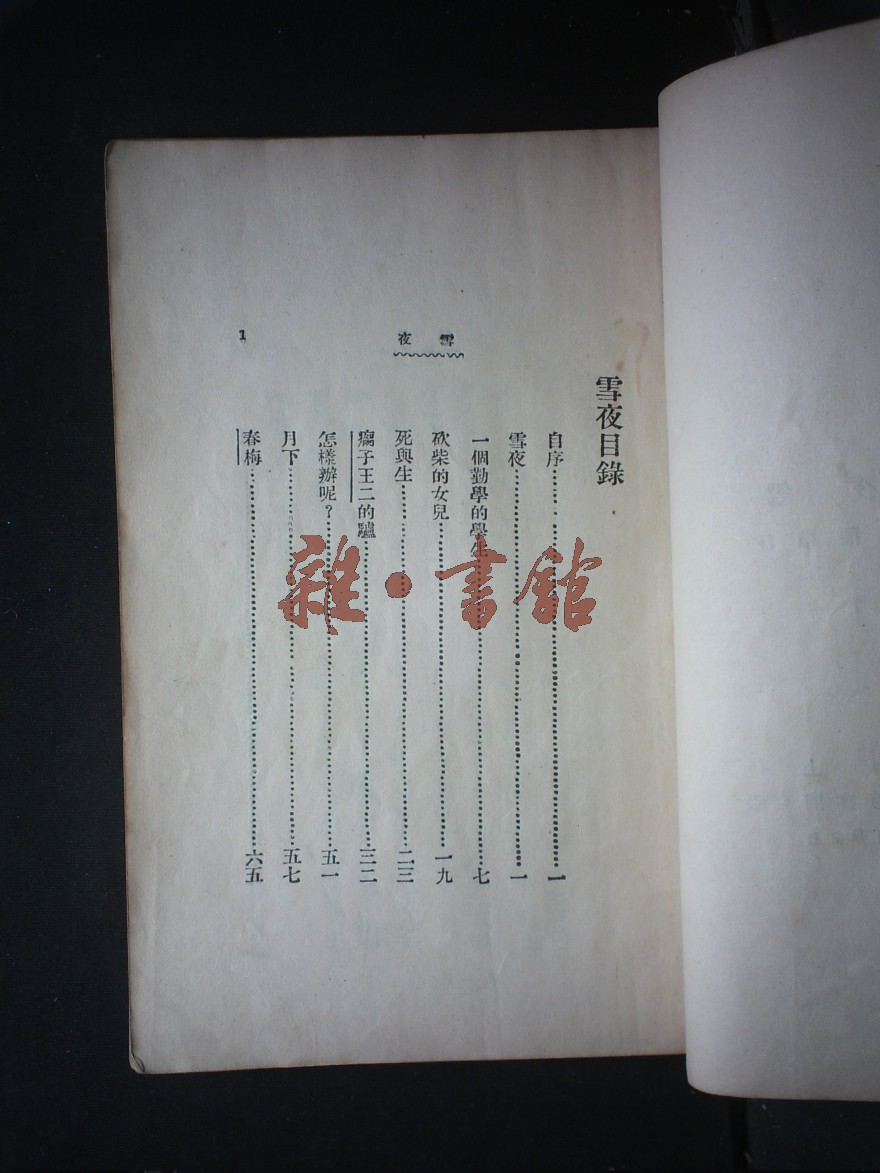 雪夜目錄
自序……一
雪夜……一
一個勤學的學生……七
砍柴的女兒……一九
死與生……二三
瘸子王二的驢……三二
怎樣辦呢？……五一
月下……五七
春梅……六五
雪夜
1
雜·書館